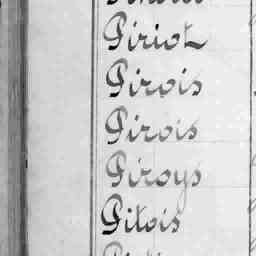 Piriot
Pirois
Pirois
Piroys
Pitois